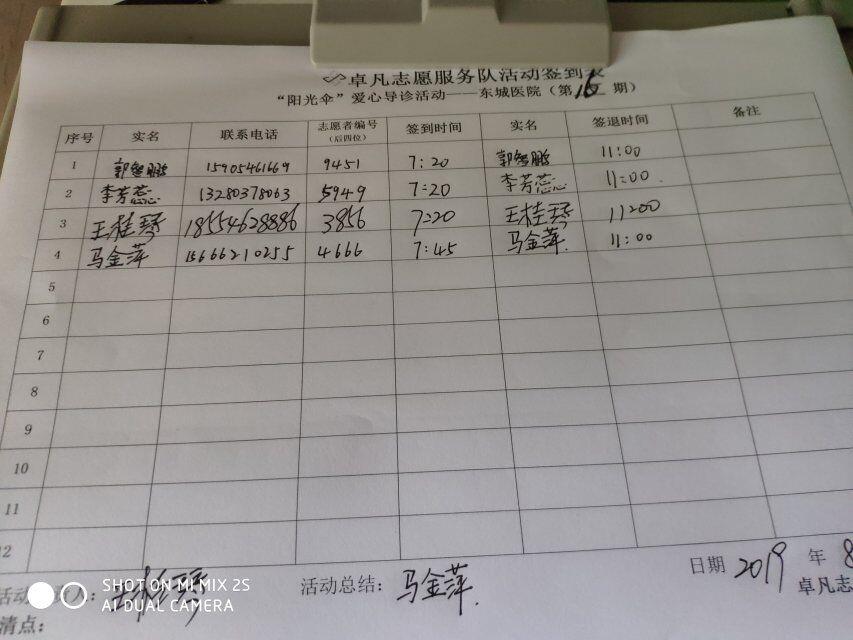 卓凡志愿服务队活动签到表
“阳光伞”爱心导诊活动——东城医院（第16期）
序号 实名 联系电话 志愿者编号（后四位） 签到时间 实名 签退时间 备注
1 郭智鹏 15905461669 9451 7:20 郭智鹏 11:00
2 李芳蕊 13280378063 5949 7:20 李芳蕊 11:00
3 王桂琴 18554628886 3856 7:20 王桂琴 11:00
4 马金萍 15666210255 4666 7:45 马金萍 11:00
5
6
7
8
9
10
11
12
日期 2019 年 8
活动 人： 王桂琴 活动总结： 马金萍 卓凡志
清点：
SHOT ON MI MIX 2S
AI DUAL CAMERA